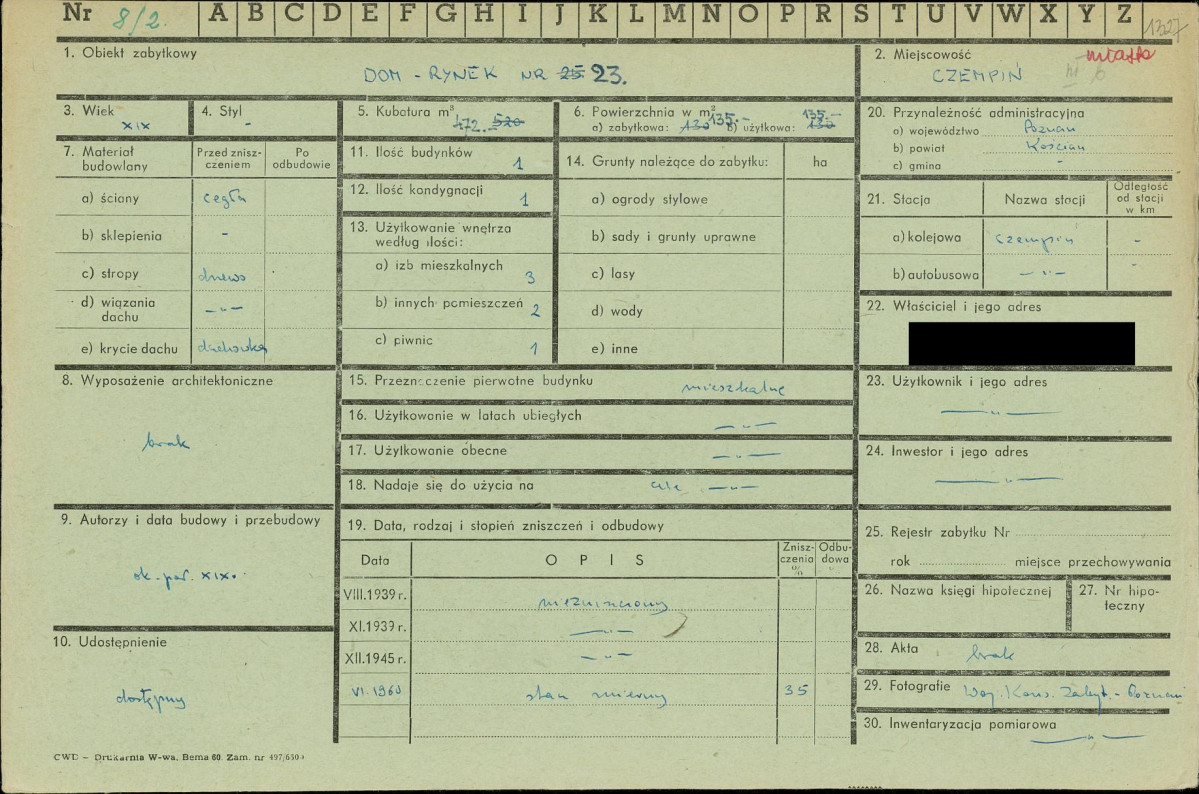 Nr 8/2. A B C D E F G H I J K L M N O P R S T U V W X Y Z 1327
1. Obiekt zabytkowy
DOM - RYNEK NR 25 23.
2. Miejscowość miasto
CZEMPIŃ
3. Wiek
XIX
4. Styl
-
5. Kubatura m³
472.- 520
6. Powierzchnia w m²
a) zabytkowa: 130 135.- b) użytkowa: 130 135.-
7. Materiał budowlany
Przed zniszczeniem
Po odbudowie
a) ściany cegła
b) sklepienia -
c) stropy drewno
d) wiązania dachu -"-
e) krycie dachu dachówka
8. Wyposażenie architektoniczne
brak
9. Autorzy i data budowy i przebudowy
ok. poł. XIX.
10. Udostępnienie
dostępny
11. Ilość budynków 1
12. Ilość kondygnacji 1
13. Użytkowanie wnętrza według ilości:
a) izb mieszkalnych 3
b) innych pomieszczeń 2
c) piwnic 1
14. Grunty należące do zabytku: ha
a) ogrody stylowe
b) sady i grunty uprawne
c) lasy
d) wody
e) inne
15. Przeznaczenie pierwotne budynku mieszkalne
16. Użytkowanie w latach ubiegłych -"-
17. Użytkowanie obecne -"-
18. Nadaje się do użycia na cele -"-
19. Data, rodzaj i stopień zniszczeń i odbudowy
Data
OPIS
Zniszczenia %
Odbudowa %
VIII.1939 r. niezniszczony
XI.1939 r. -"-
XII.1945 r. -"-
VI.1960 stan mierny 35
20. Przynależność administracyjna
a) województwo Poznań
b) powiat Kościan
c) gmina -
21. Stacja
Nazwa stacji
Odległość od stacji w km
a) kolejowa Czempiń -
b) autobusowa -"- -
22. Właściciel i jego adres
23. Użytkownik i jego adres
-"-
24. Inwestor i jego adres
-"-
25. Rejestr zabytku Nr
rok miejsce przechowywania
26. Nazwa księgi hipotecznej
27. Nr hipoteczny
28. Akta brak
29. Fotografie Woj. Kons. Zabyt. - Poznań
30. Inwentaryzacja pomiarowa
-"-
CWD – Drukarnia W-wa, Bema 60. Zam. nr 497/650